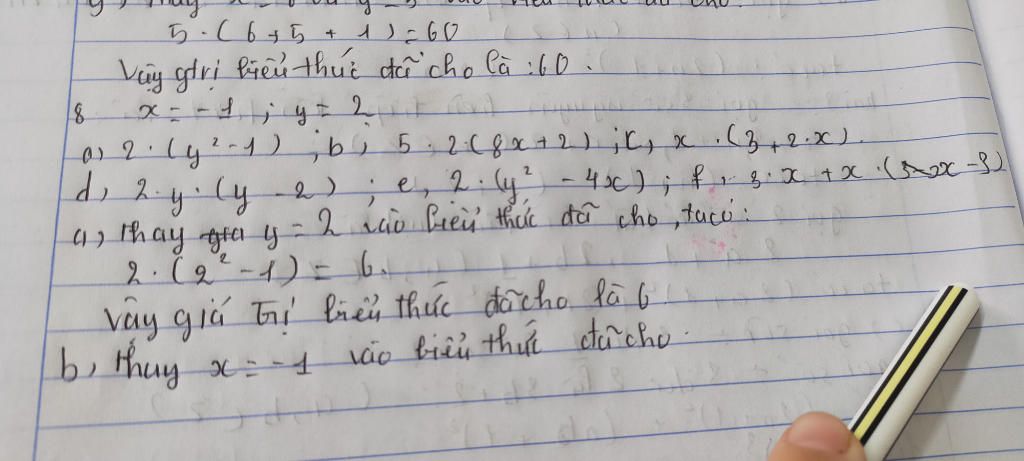 5 . (6 + 5 + 1) = 60
Vậy gtrị biểu thức đã cho là : 60 .
8 x = - 1 ; y = 2
a) 2 . (y² - 1) ; b, 5 . 2 (8x + 2) ; c, x . (3 + 2 . x) .
d, 2 . y . (y - 2) ; e, 2 . (y² - 4x) ; f, 3 . x + x .
a, thay y = 2 vào biểu thức đã cho, ta có :
2 . (2² - 1) = 6 .
Vậy giá trị biểu thức đã cho là 6
b, thay x = - 1 vào biểu thức đã cho .